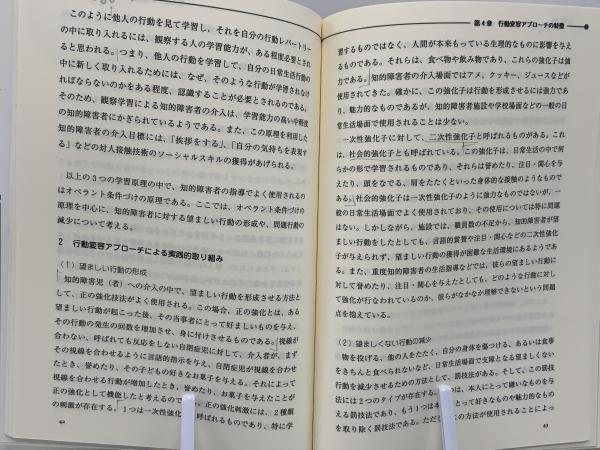 このように他人の行動を見て学習し、それを自分の行動レパートリー
の中に取り入れるには、観察する人の学習能力が、ある程度必要とされ
ると思われる。つまり、他人の行動を学習して、自分の日常生活行動の
中に新しく取り入れるためには、なぜ、そのような行動が学習されなけ
ればならないのかをある程度、認識することが必要とされるのである。
そのため、観察学習による知的障害者の介入は、学習能力の高い中軽度
の知的障害者にかぎられているようである。また、この原理を利用した
知的障害者の介入目標には、「挨拶をする」、「自分の気持ちを表現す
る」などの対人接触技術のソーシャルスキルの獲得があげられる。
以上の3つの学習原理の中で、知的障害者の指導でよく使用されるの
はオペラント条件づけの原理である。ここでは、オペラント条件づけの
原理を中心に、知的障害者に対する望ましい行動の形成や、問題行動の
減少について考える。
2 行動変容アプローチによる実践的取り組み
(1)望ましい行動の形成
知的障害児(者)への介入の中で、望ましい行動を形成させる方法と
して、正の強化技法がよく使用される。この場合、正の強化とは、ある
望ましい行動が起こった後、その当事者にとって好ましいものを与え、
その行動の発生の回数を増加させ、身に付けさせるものである。視線が
合わない、呼ばれても反応をしない自閉症児に対して、介入者が、まず
その視線を合わせるように言語的指示を与え、自閉症児が視線を合わせ
たとき、誉めたり、その子どもの好きなお菓子を与える。それによって
視線を合わせる行動が増加したとき、誉めたり、お菓子を与えたことが
正の強化として機能したと考えるので、正の強化刺激には、2種類
の刺激が存在する。1つは一次性強化 呼ばれるものであり、特に学
42
第4章 行動変容アプローチの特徴
習するものではなく、人間が本来もっている生理的なものに影響を与え
るものである。それらは、食べ物や飲み物であり、これらの強化子は強
力である。知的障害者の介入場面ではアメ、クッキー、ジュースなどが
使用されてきた。確かに、この強化子は行動を形成させるには強力であ
り、魅力的なものであるが、知的障害者施設や学校場面などの一般の日
常生活場面で使用されることは少ない。
一次性強化子に対して、二次性強化子と呼ばれるものがある。これ
は、社会的強化子とも呼ばれている。この強化子は、日常生活の中で何
らかの形で学習されるものであり、それらは誉めたり、注目・関心を与
えたり、頭をなでる、肩をたたくといった身体的な接触のようなもので
ある。社会的強化子は一次性強化子のように強力なものではないが、一
般の日常生活場面でよく使用されており、その使用については特に問題
はない。しかしながら、施設では、職員数の不足から、知的障害者が望
ましい行動をしたとしても、言語的賞賛や注目・関心などの二次性強化
子が与えられず、望ましい行動の獲得が困難な生活環境にあるようであ
る。また、重度知的障害者の生活指導などでは、彼らの望ましい行動に
対して誉めたり、注目・関心を与えたとしても、どのような行動に対し
て強化が行なわれているのか、彼らがなかなか理解できないという問題
点を抱えている。
(2)望ましくない行動の減少
物を投げる、他の人をたたく、自分の身体を傷つける、あるいは食事
をきちんと食べられないなど、日常生活場面で支障となる望ましくない
行動を減少させるための方法として、罰技法がある。そして、この罰技
法には2つのタイプが存在する。 は、本人にとって嫌なものを与
える罰技法であり、もう1つは本 とって好きなものや魅力的なもの
を取り除く罰技法である。ただし、 の方法が使用されることによっ
43